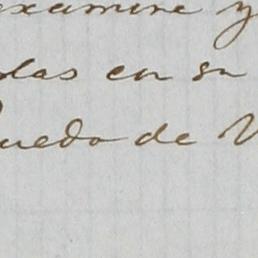 examine y
das en su
quedo de V